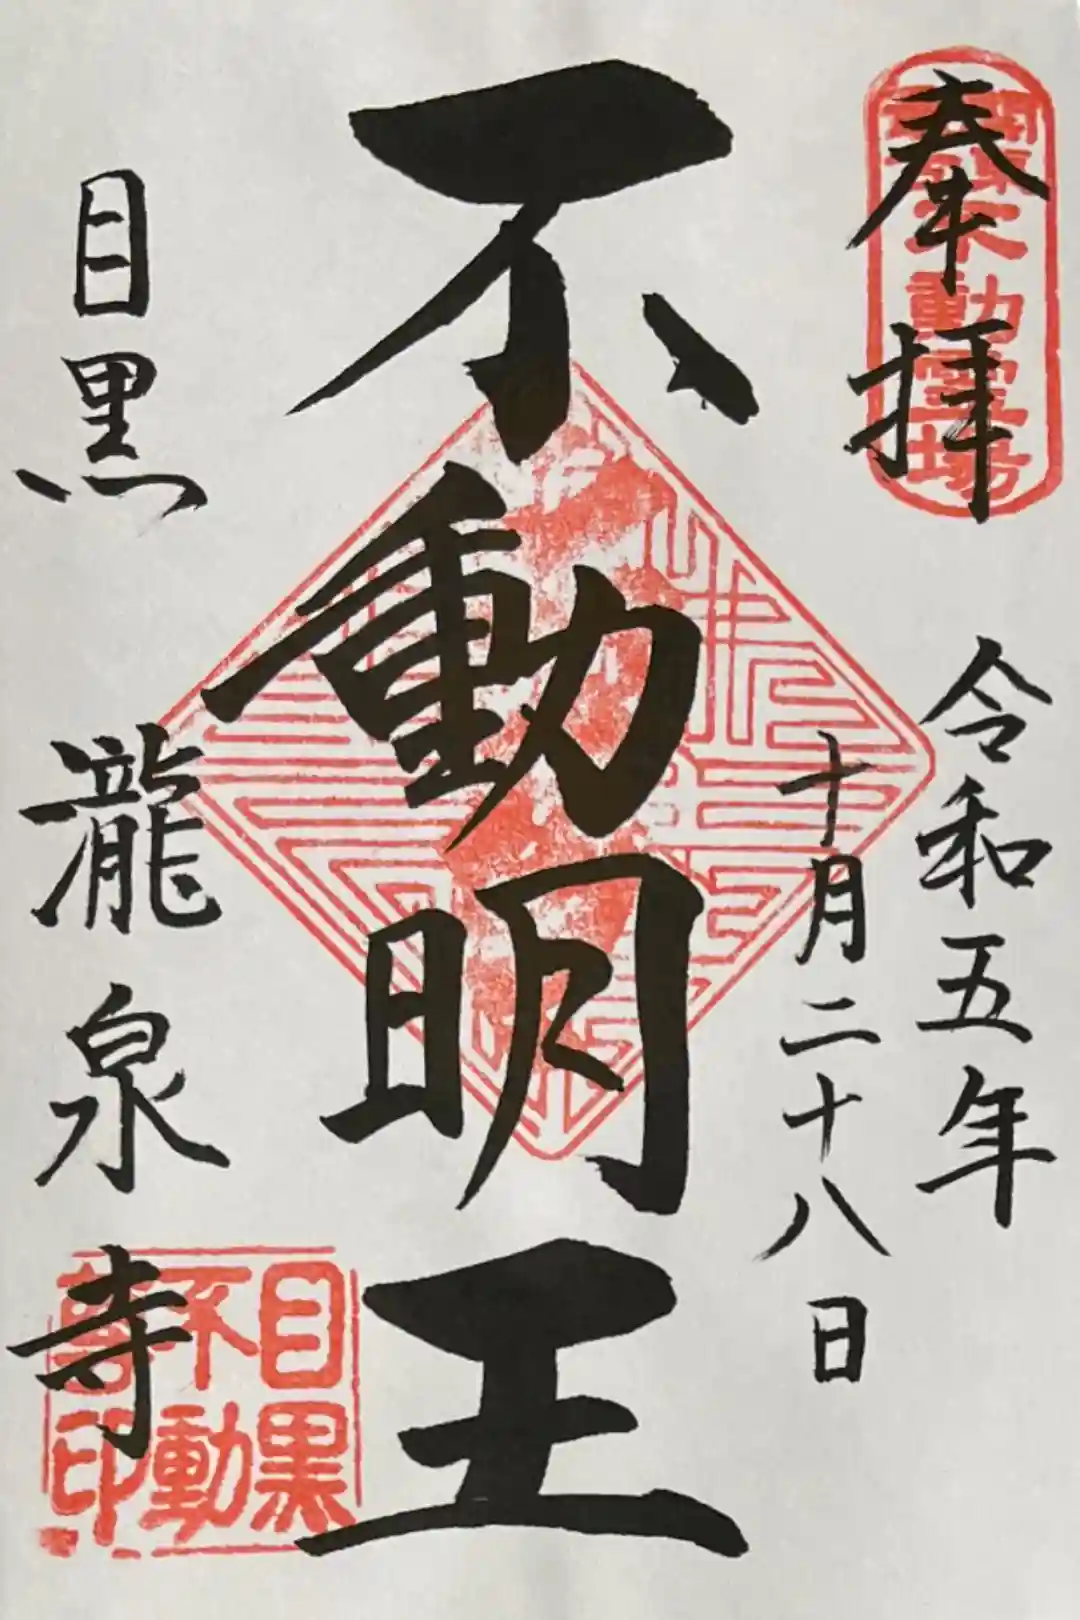 奉拝
関東不動霊場
令和五年
十月二十八日
不動明王
目黒瀧泉寺
目黒
不動
尊印